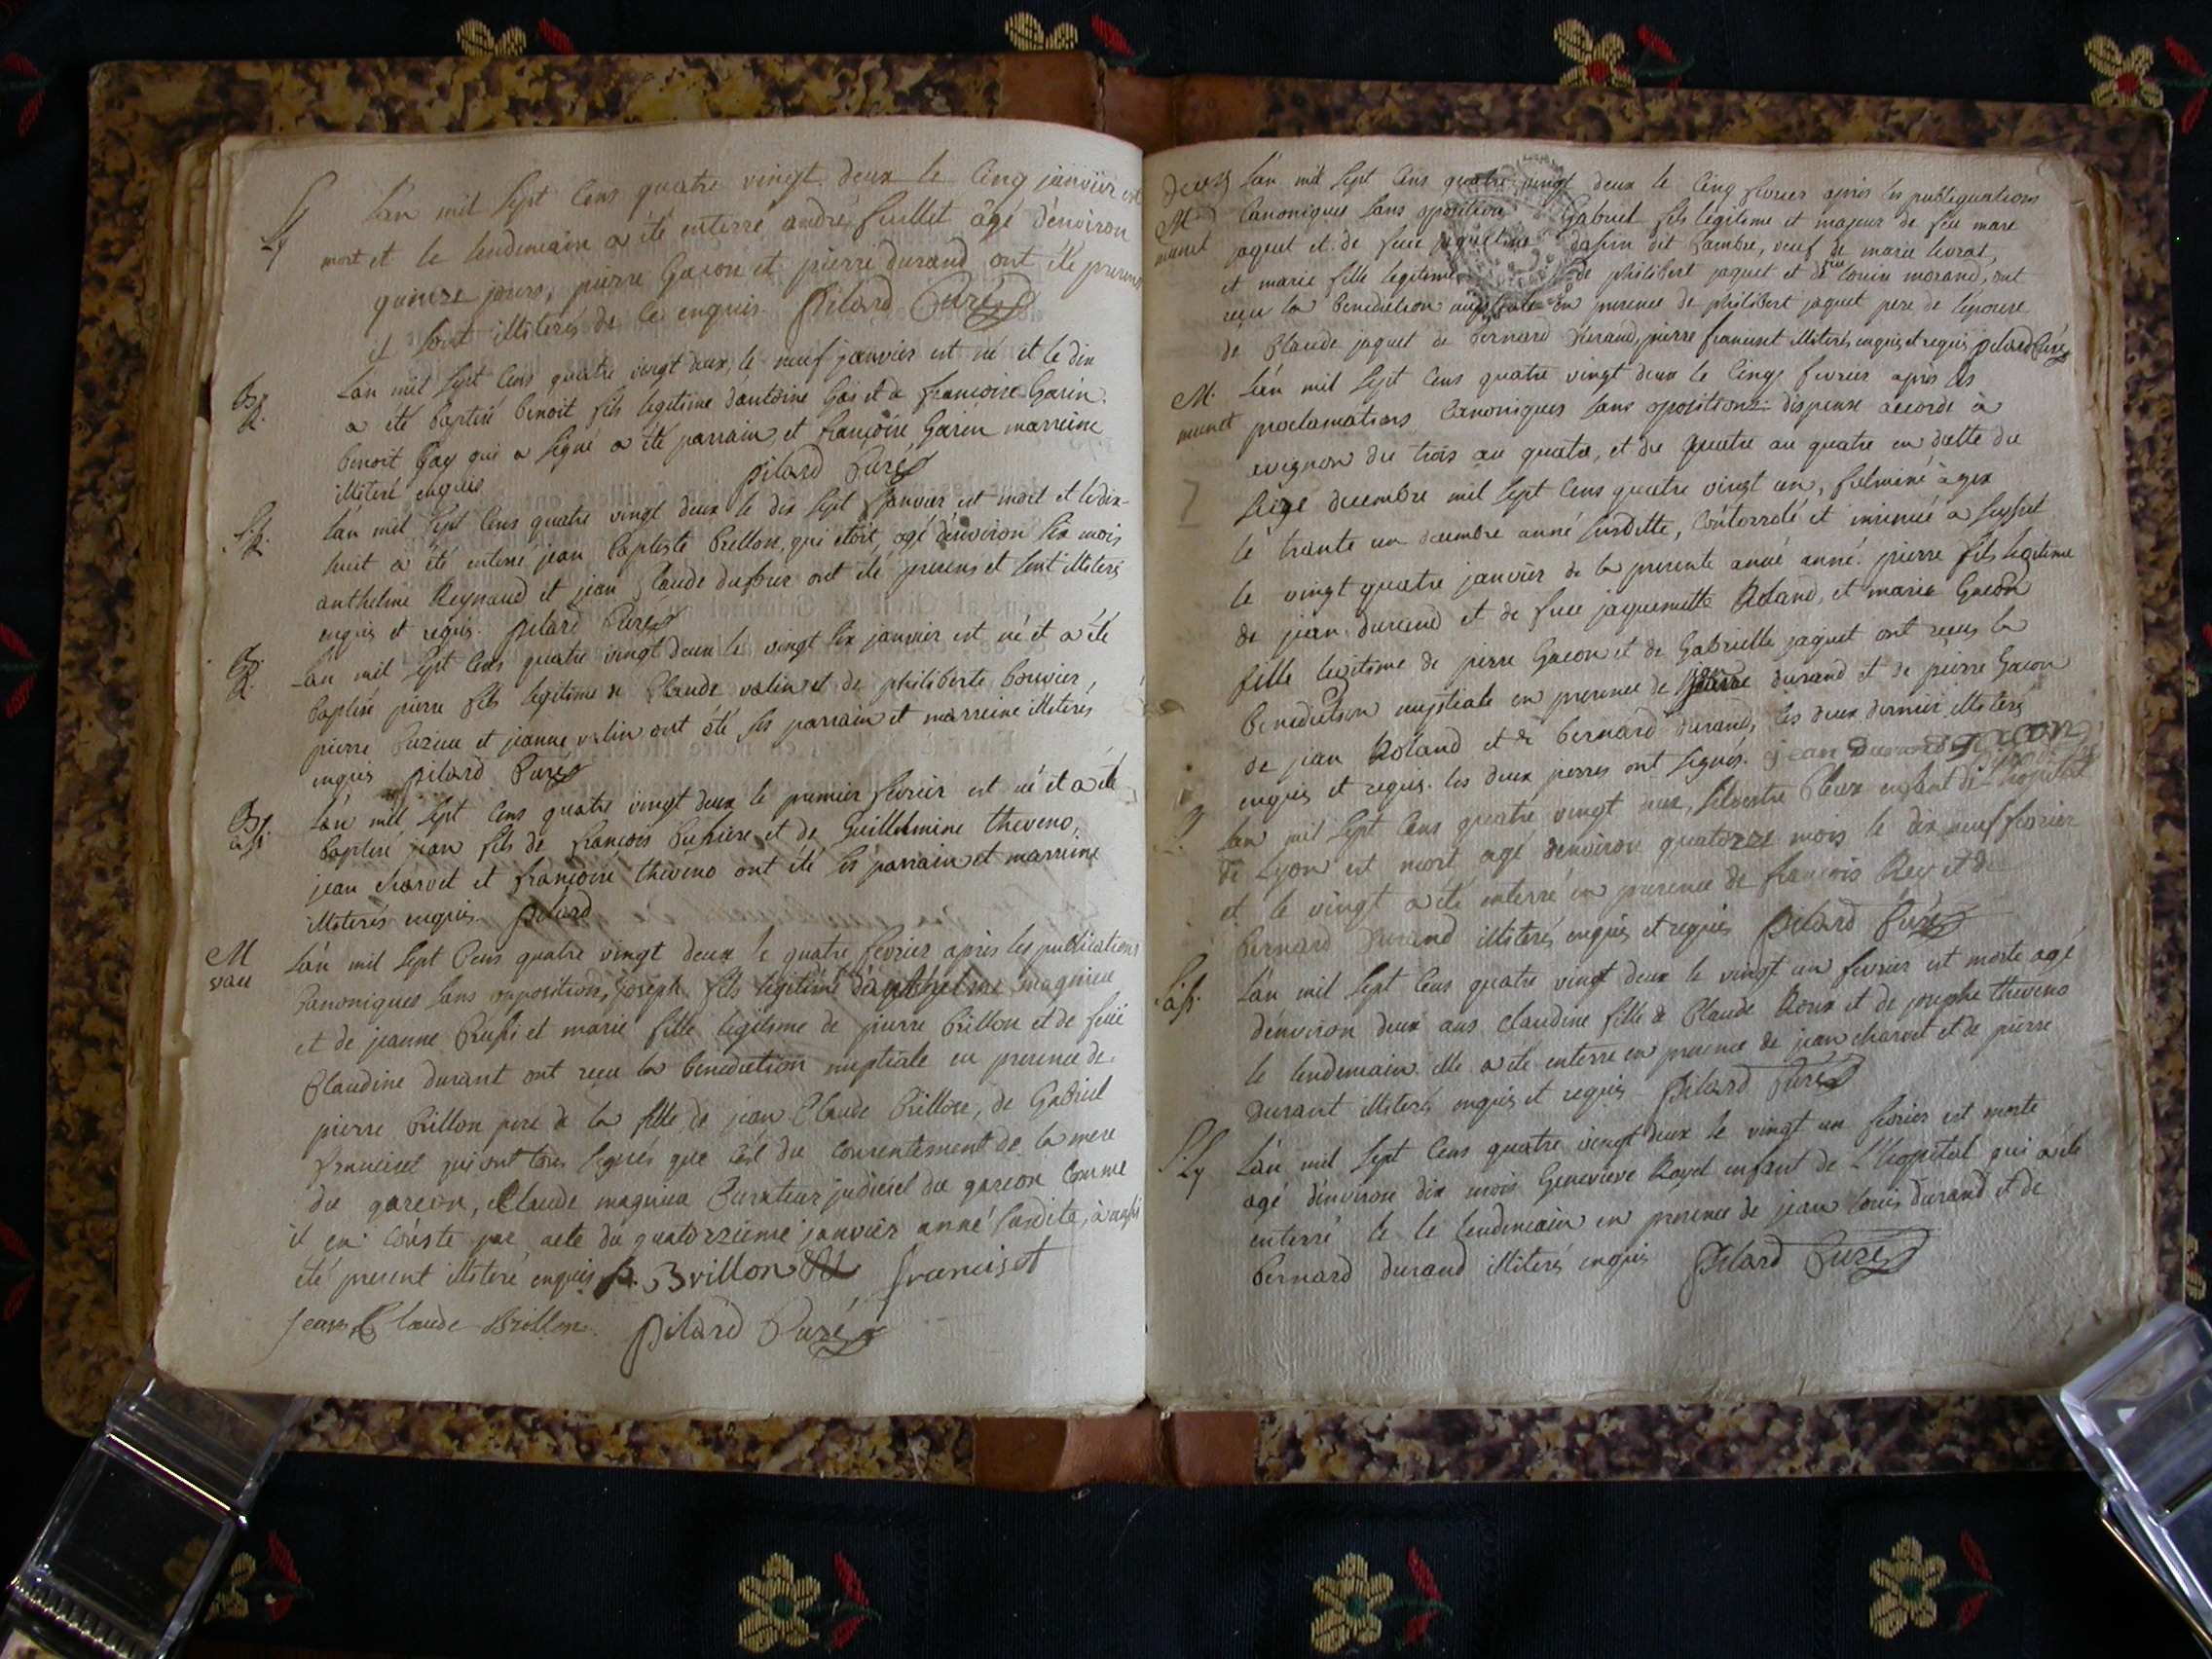 S
Ly
L'an mil sept cens quatre vingt deux le cinq janvier est
mort et le lendemain a été enterré andré feuillet âgé d'environ
quinze jours, pierre Gacon et pierre durand ont été presens
et sont illiterés de ce enquis. pilard Curé
Bp.
L'an mil sept cens quatre vingt deux, le neuf janvier est né et le dix
a été baptisé benoit fils legitime d'antoine Gai et d francoise Garin.
benoit Gay qui a signé a été parrain, et francoise Garin marreine
illiteré enquis pilard Curé
L'an mil sept cens quatre vingt deux le dix sept janvier est mort et le dix-
huit a été enterré jean baptiste brillon, qui étoit, agé d'environ six mois
anthelme Reynaud et jean Claude ont été presens et sont illiterés
enquis et requis. pilard Curé
L'an mil sept cens quatre vingt deux le vingt six janvier est né et a été
baptisé pierre fils legitime de Claude valin et de philiberte bouvier,
pierre et jeanne valin ont été ses parrain et marreine illiterés
enquis pilard Curé
L'an mil sept cens quatre vingt deux le premier fevrier est né et a été
baptisé jean fils de francois et de Guillelmine theveno,
jean charvet et francoise theveno ont été ses parrain et marreine
illiterés enquis. pilard
M
L'an mil sept Cens quatre vingt deux le quatre fevrier après les publications
Canoniques sans opposition, joseph fils legitime d'anthelme magnieu
et de jeanne et marie fille legitime de pierre brillon et de feüe
Claudine durant ont reçu la benediction nuptiale en presence de
pierre brillon pere de la fille, de jean Claude brillon, de Gabriel
franciset qui ont tous signés que c'est du consentement de la mere
du garcon, Claude magnieu Curateur judiciel du garcon comme
il en conste par acte du quatorzieme janvier anné susdite, a aussi
été present illiteré enquis p. Brillon franciset
jean Claude Brillon. pilard Curé
deux
L'an mil sept cens quatre vingt deux le cinq fevrier après les publiquations
M
Canoniques sans oposition Gabriel fils legitime et majeur de feu marc
munet
jaquet et de feüe jaqueline dit Lambre, veuf de marie livrat,
et marie fille legitime de philibert jaquet et de feue louise morand, ont
reçu la benediction nuptiale en presence de philibert jaquet pere de l'epouse
de Claude jaquet de bernard durand, pierre franciset illiterés enquis et requis pilard Curé
M.
L'an mil sept cens quatre vingt deux le cinq fevrier après les
munet
proclamations Canoniques sans opositions. dispense accordé à
avignon du trois au quatre, et du quatre au quatre en datte du
seize decembre mil sept cens quatre vingt un, fulminé à gex
le trante un decembre anné susditte, Contorrolé et insinué a seyssel
le vingt quatre janvier de la presente anné anné. pierre fils legitime
de jean durand et de feue jaquemette Roland, et marie Gacon
fille legitime de pierre Gacon et de Gabrielle jaquet ont reçus la
benediction nuptiale en presence de jean durand et de pierre Gacon
de jean Roland et de bernard durand, les deux dernier illiterés
enquis et requis. les deux peres ont signés. jean durand gacon
L'an mil sept cens quatre vingt deux, silvestre enfant de L'hopital
de Lyon est mort agé d'environ quatorze mois le dix neuf fevrier
et le vingt a été enterré en presence de francois Rey et de
bernard durand illiterés enquis et requis pilard Curé
L'an mil sept cens quatre vingt deux le vingt un fevrier est morte agé
d'environ deux ans claudine fille de Claude Roux et de josephe theveno
le lendemain elle a été enterré en presence de jean charvet et de pierre
Durant illiterés enquis et requis pilard Curé
S. Ly
L'an mil sept cens quatre vingt deux le vingt un fevrier est morte
agé d'environ dix mois Genevieve Rayet enfant de L'hopital qui a été
enterré le le lendemain en presence de jean louis durand et de
bernard durand illiterés enquis pilard Curé